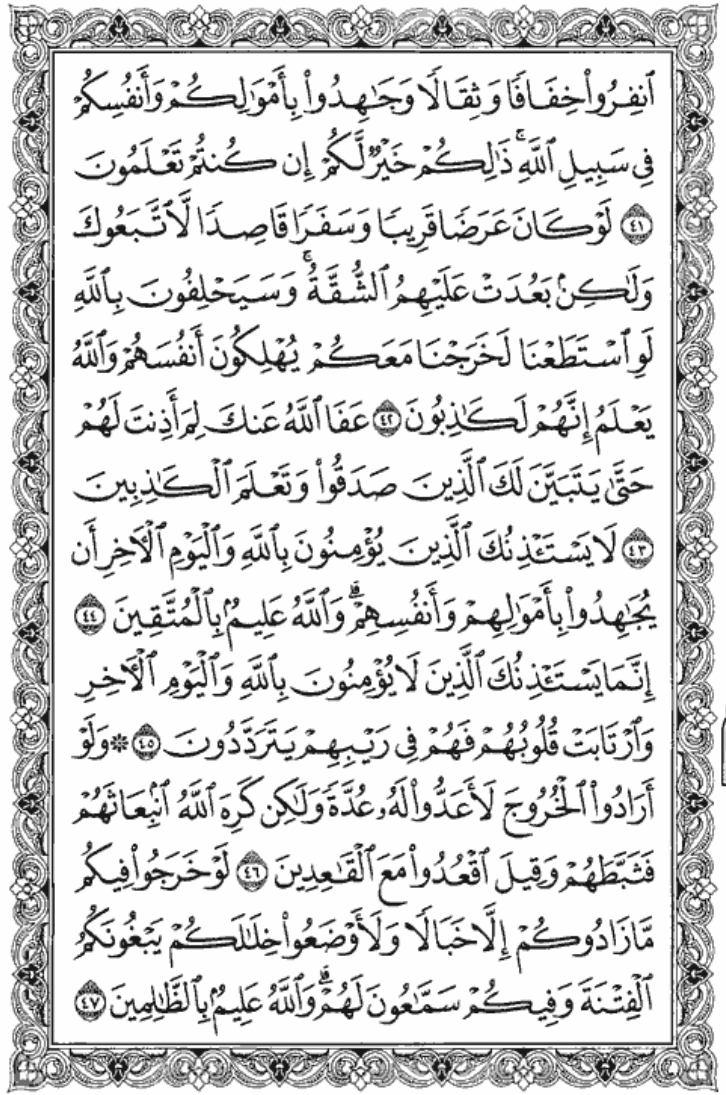 ٱنفِرُوا۟ خِفَافًا وَثِقَالًا وَجَٰهِدُوا۟ بِأَمْوَٰلِكُمْ وَأَنفُسِكُمْ
فِى سَبِيلِ ٱللَّهِ ۚ ذَٰلِكُمْ خَيْرٌ لَّكُمْ إِن كُنتُمْ تَعْلَمُونَ
٤١ لَوْ كَانَ عَرَضًا قَرِيبًا وَسَفَرًا قَاصِدًا لَّٱتَّبَعُوكَ
وَلَٰكِنۢ بَعُدَتْ عَلَيْهِمُ ٱلشُّقَّةُ ۚ وَسَيَحْلِفُونَ بِٱللَّهِ
لَوِ ٱسْتَطَعْنَا لَخَرَجْنَا مَعَكُمْ يُهْلِكُونَ أَنفُسَهُمْ وَٱللَّهُ
يَعْلَمُ إِنَّهُمْ لَكَٰذِبُونَ ٤٢ عَفَا ٱللَّهُ عَنكَ لِمَ أَذِنتَ لَهُمْ
حَتَّىٰ يَتَبَيَّنَ لَكَ ٱلَّذِينَ صَدَقُوا۟ وَتَعْلَمَ ٱلْكَٰذِبِينَ
٤٣ لَا يَسْتَـْٔذِنُكَ ٱلَّذِينَ يُؤْمِنُونَ بِٱللَّهِ وَٱلْيَوْمِ ٱلْـَٔاخِرِ أَن
يُجَٰهِدُوا۟ بِأَمْوَٰلِهِمْ وَأَنفُسِهِمْ ۗ وَٱللَّهُ عَلِيمٌۢ بِٱلْمُتَّقِينَ ٤٤
إِنَّمَا يَسْتَـْٔذِنُكَ ٱلَّذِينَ لَا يُؤْمِنُونَ بِٱللَّهِ وَٱلْيَوْمِ ٱلْـَٔاخِرِ
وَٱرْتَابَتْ قُلُوبُهُمْ فَهُمْ فِى رَيْبِهِمْ يَتَرَدَّدُونَ ٤٥ ۞ وَلَوْ
أَرَادُوا۟ ٱلْخُرُوجَ لَأَعَدُّوا۟ لَهُۥ عُدَّةً وَلَٰكِن كَرِهَ ٱللَّهُ ٱنۢبِعَاثَهُمْ
فَثَبَّطَهُمْ وَقِيلَ ٱقْعُدُوا۟ مَعَ ٱلْقَٰعِدِينَ ٤٦ لَوْ خَرَجُوا۟ فِيكُم
مَّا زَادُوكُمْ إِلَّا خَبَالًا وَلَأَوْضَعُوا۟ خِلَٰلَكُمْ يَبْغُونَكُمُ
ٱلْفِتْنَةَ وَفِيكُمْ سَمَّٰعُونَ لَهُمْ ۗ وَٱللَّهُ عَلِيمٌۢ بِٱلظَّٰلِمِينَ ٤٧